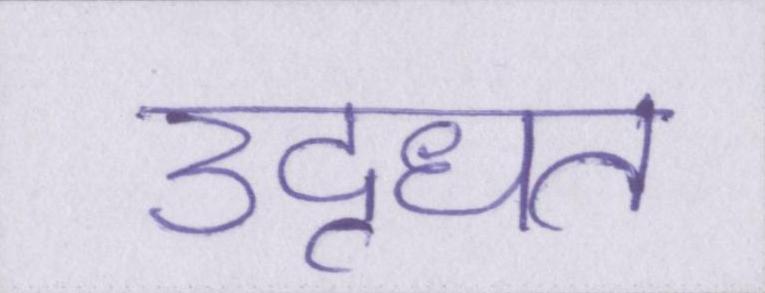 उदृधत